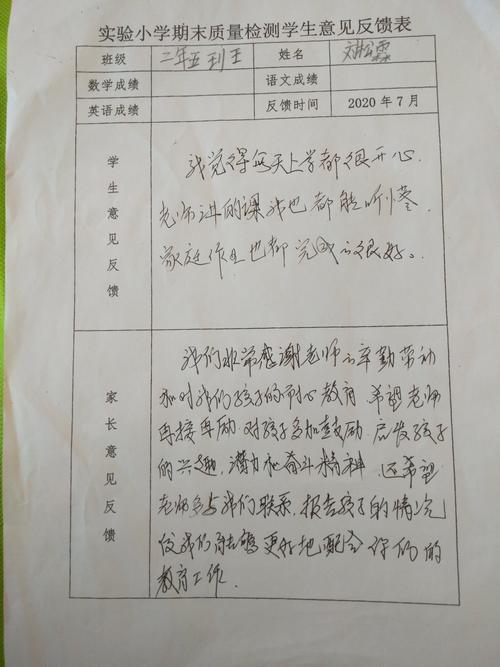 实验小学期末质量检测学生意见反馈表
班级 二年五班 姓名 刘松霖
数学成绩 语文成绩
英语成绩 反馈时间 2020年7月
学生意见反馈
我觉得每天上学都很开心,
老师讲的课我也都能听懂,
家庭作业也都完成的很好。
家长意见反馈
我们非常感谢老师的辛勤劳动
和对我们孩子的耐心教育 希望老师
再接再励 对孩子多加鼓励 启发孩子
的兴趣,潜力和奋斗精神 还希望
老师多与我们联系,报告孩子的情况
使我们能够更好地配合你们的
教育工作.